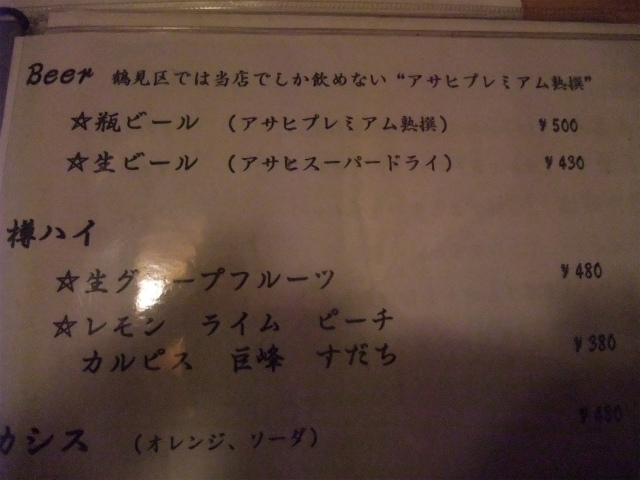 Beer 鶴見区では当店でしか飲めない“アサヒプレミアム熟撰”
☆瓶ビール （アサヒプレミアム熟撰） ¥500
☆生ビール （アサヒスーパードライ） ¥430
樽ハイ
☆生グレープフルーツ ¥480
☆レモン ライム ピーチ
カルピス 巨峰 すだち ¥380
カシス （オレンジ、ソーダ）